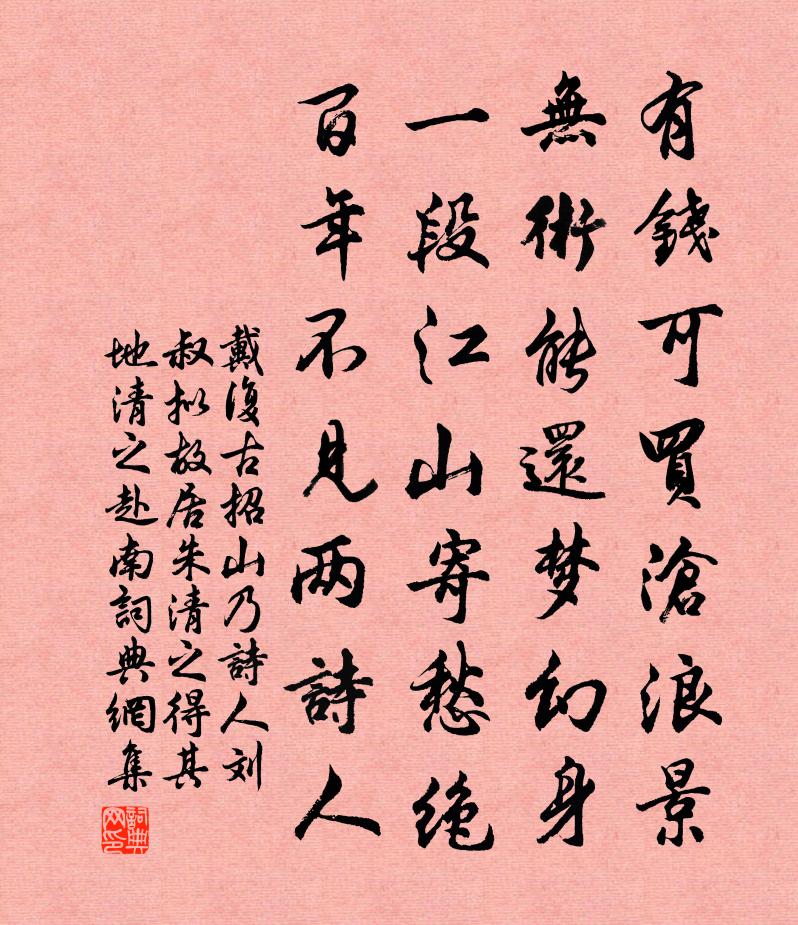 有錢可買滄浪景
無術能還梦幻身
一段江山寄愁絶
百年不見两詩人
戴復古招山乃詩人刘
叔拟故居朱清之得其
地清之赴南詞典網集
詞典网印